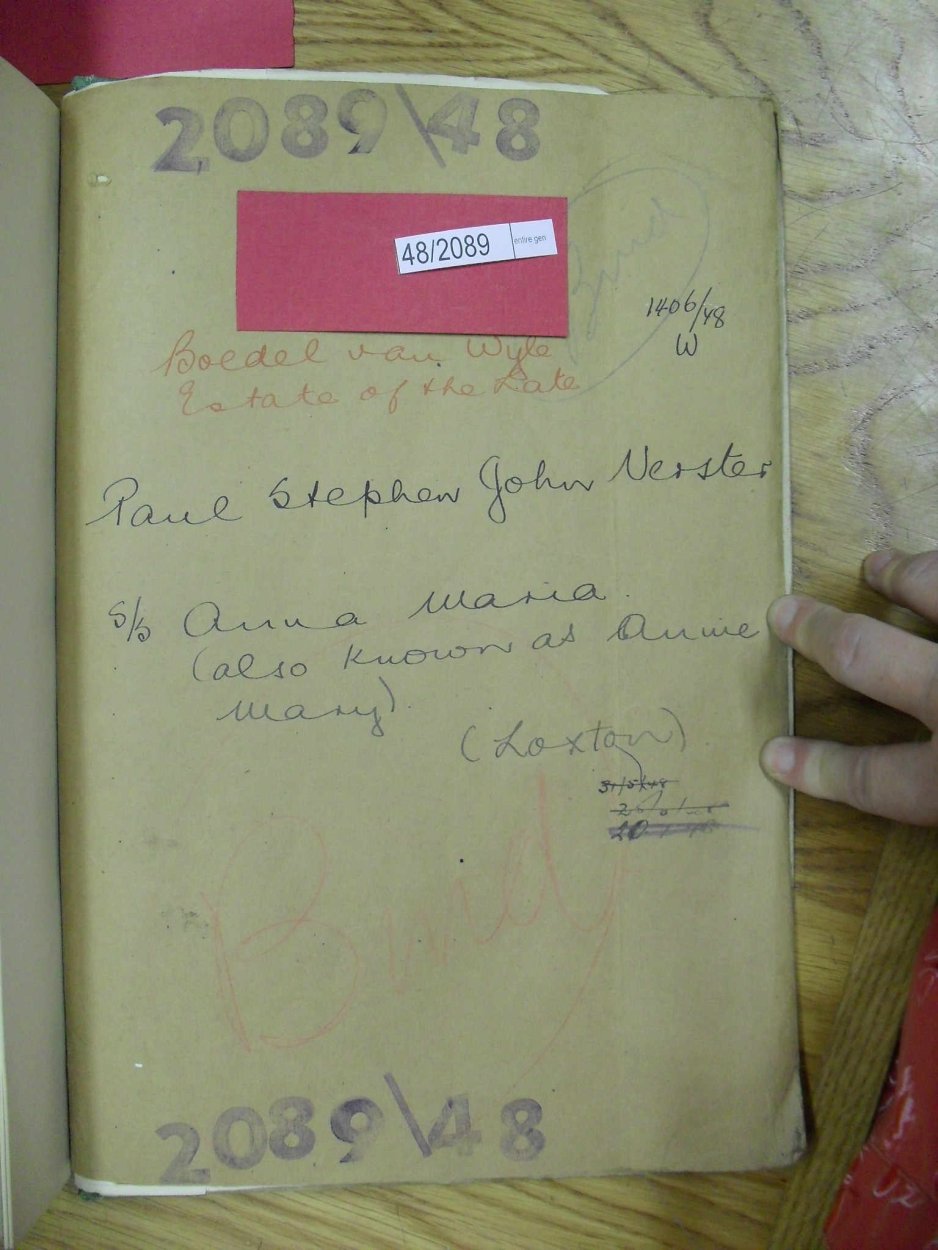 2089\48
48/2089 entire gen
Bind
1406/48
W
Boedel van Wyle
Estate of the Late
Paul Stephen John Verster
S/S Anna Maria.
(also known as Annie
Mary)
(Loxton)
31/5/48
Bind
2089\48